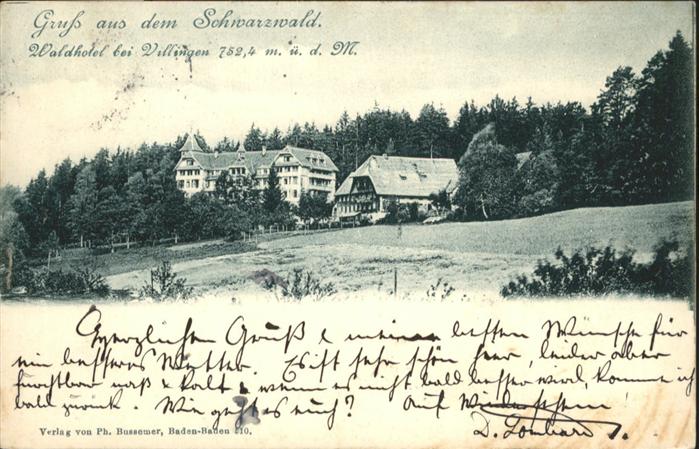 Gruß aus dem Schwarzwald.
Waldhotel bei Villingen 752,4 m. ü. d. M.
Herzlichen Gruß & meine besten Wünsche für
ein besseres Wetter. Es ist sehr schön hier, leider aber
furchtbar naß & kalt & wenn es nicht bald besser wird, komme ich
bald zurück. Wie geht es euch? Auf Wiedersehen
D. Lombard
Verlag von Ph. Bussemer, Baden-Baden 310.